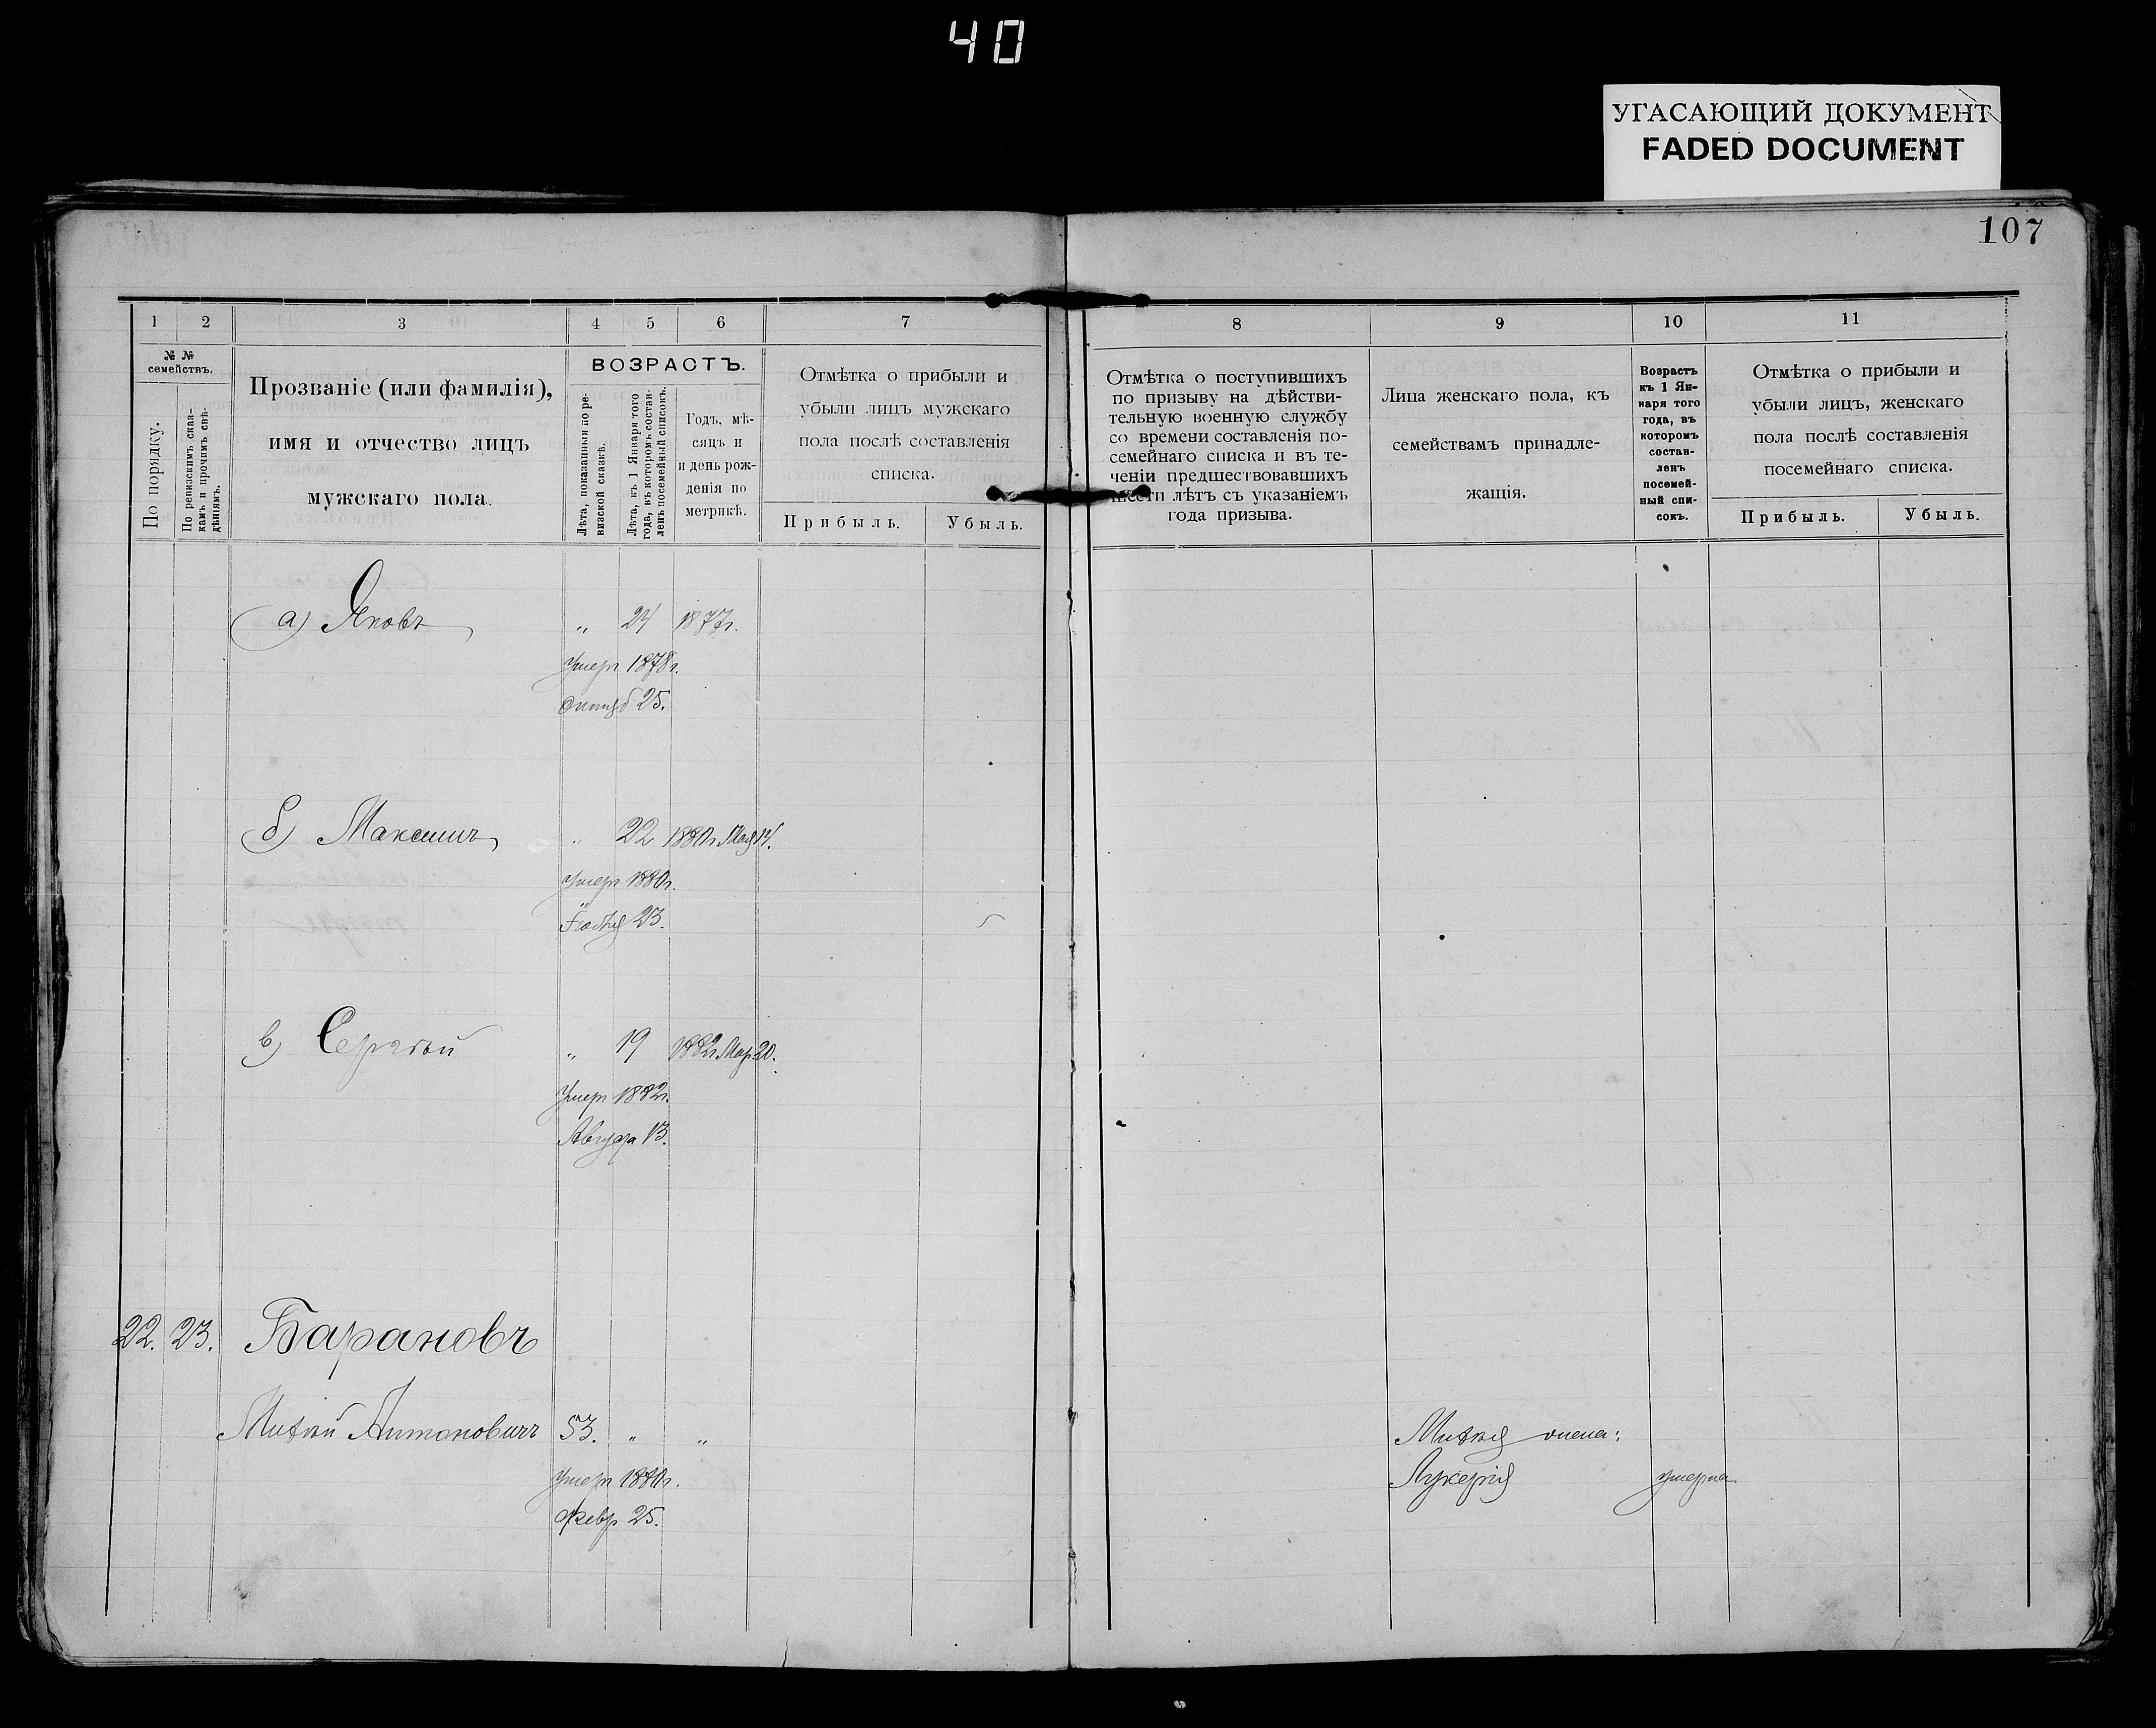 40
УГАСАЮЩИЙ ДОКУМЕНТ
FADED DOCUMENT
107
1 2 3 4 5 6 7
№ №
семействъ.
По порядку.
По ревизскимъ сказ-
камъ и прочимъ свѣ-
дѣніямъ.
Прозваніе (или фамилія),
имя и отчество лицъ
мужскаго пола.
ВОЗРАСТЪ.
Лѣта, показанныя по ре-
визской сказкѣ.
Лѣта, къ 1 Января того
года, въ которомъ состав-
ленъ посемейный списокъ.
Годъ, мѣ-
сяцъ и
и день рож-
денія по
метрикѣ.
Отмѣтка о прибыли и
убыли лицъ мужскаго
пола послѣ составленія
списка.
Прибыль. Убыль.
8 9 10 11
Отмѣтка о поступившихъ
по призыву на дѣйстви-
тельную военную службу
со времени составленія по-
семейнаго списка и въ те-
ченіи предшествовавшихъ
шести лѣтъ съ указаніемъ
года призыва.
Лица женскаго пола, къ
семействамъ принадле-
жащія.
Возрастъ
къ 1 Ян-
наря того
года, въ
которомъ
состав-
ленъ
посемей-
ный спи-
сокъ.
Отмѣтка о прибыли и
убыли лицъ, женскаго
пола послѣ составленія
посемейнаго списка.
Прибыль. Убыль.
а) Яковъ „ 24 1877г.
Умеръ 1878г.
25.
б) Максимъ „ 22 1880г. Мая 14.
Умеръ 1880г.
23.
в) Сергѣй „ 19 1882г. Мар. 20.
Умеръ 1882г.
Августа 13.
22. 23. Барановъ
Матвѣй Антоновичъ 53. „ „
Умеръ 1880г.
Февр. 25.
Матвѣя жена:
Лукерія умерла